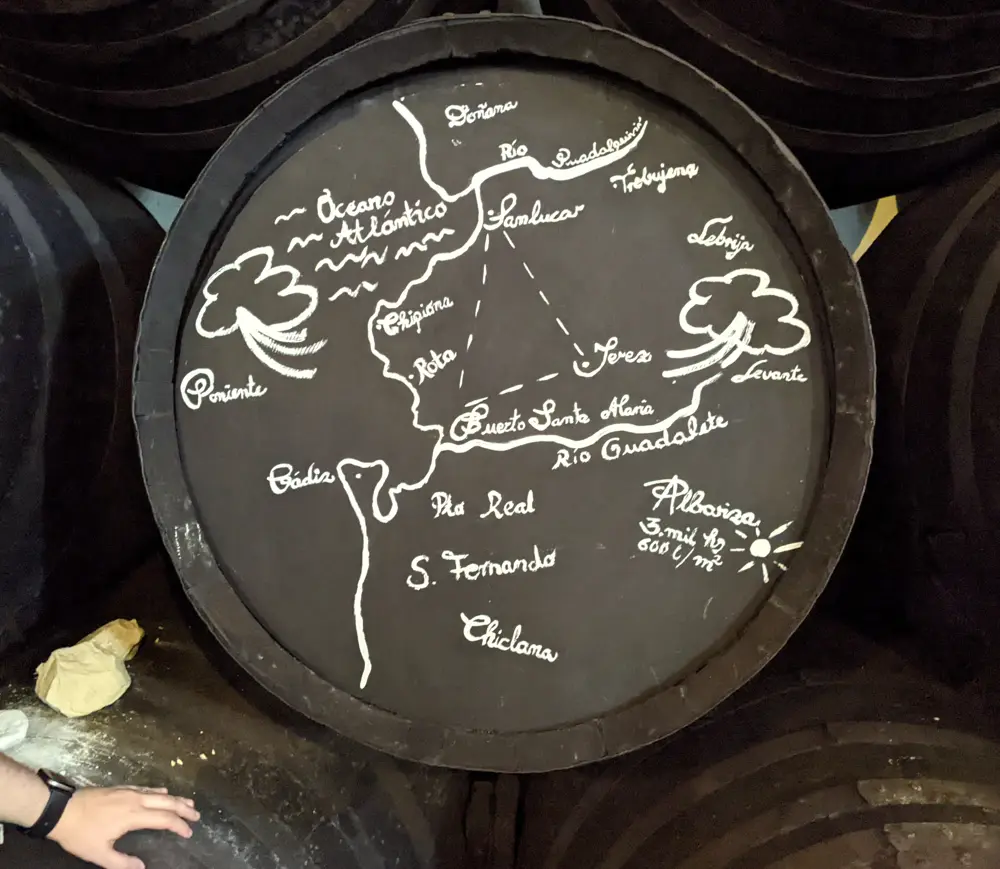 Doñana
Río Guadalquivir
Trebujena
Océano
Atlántico
Sanlucar
Lebrija
Chipiona
Rota
Jerez
Poniente
Levante
Puerto Santa Maria
Río Guadalete
Cádiz
Pto Real
Albariza
3.mil hs
600 l/m²
S. Fernando
Chiclana